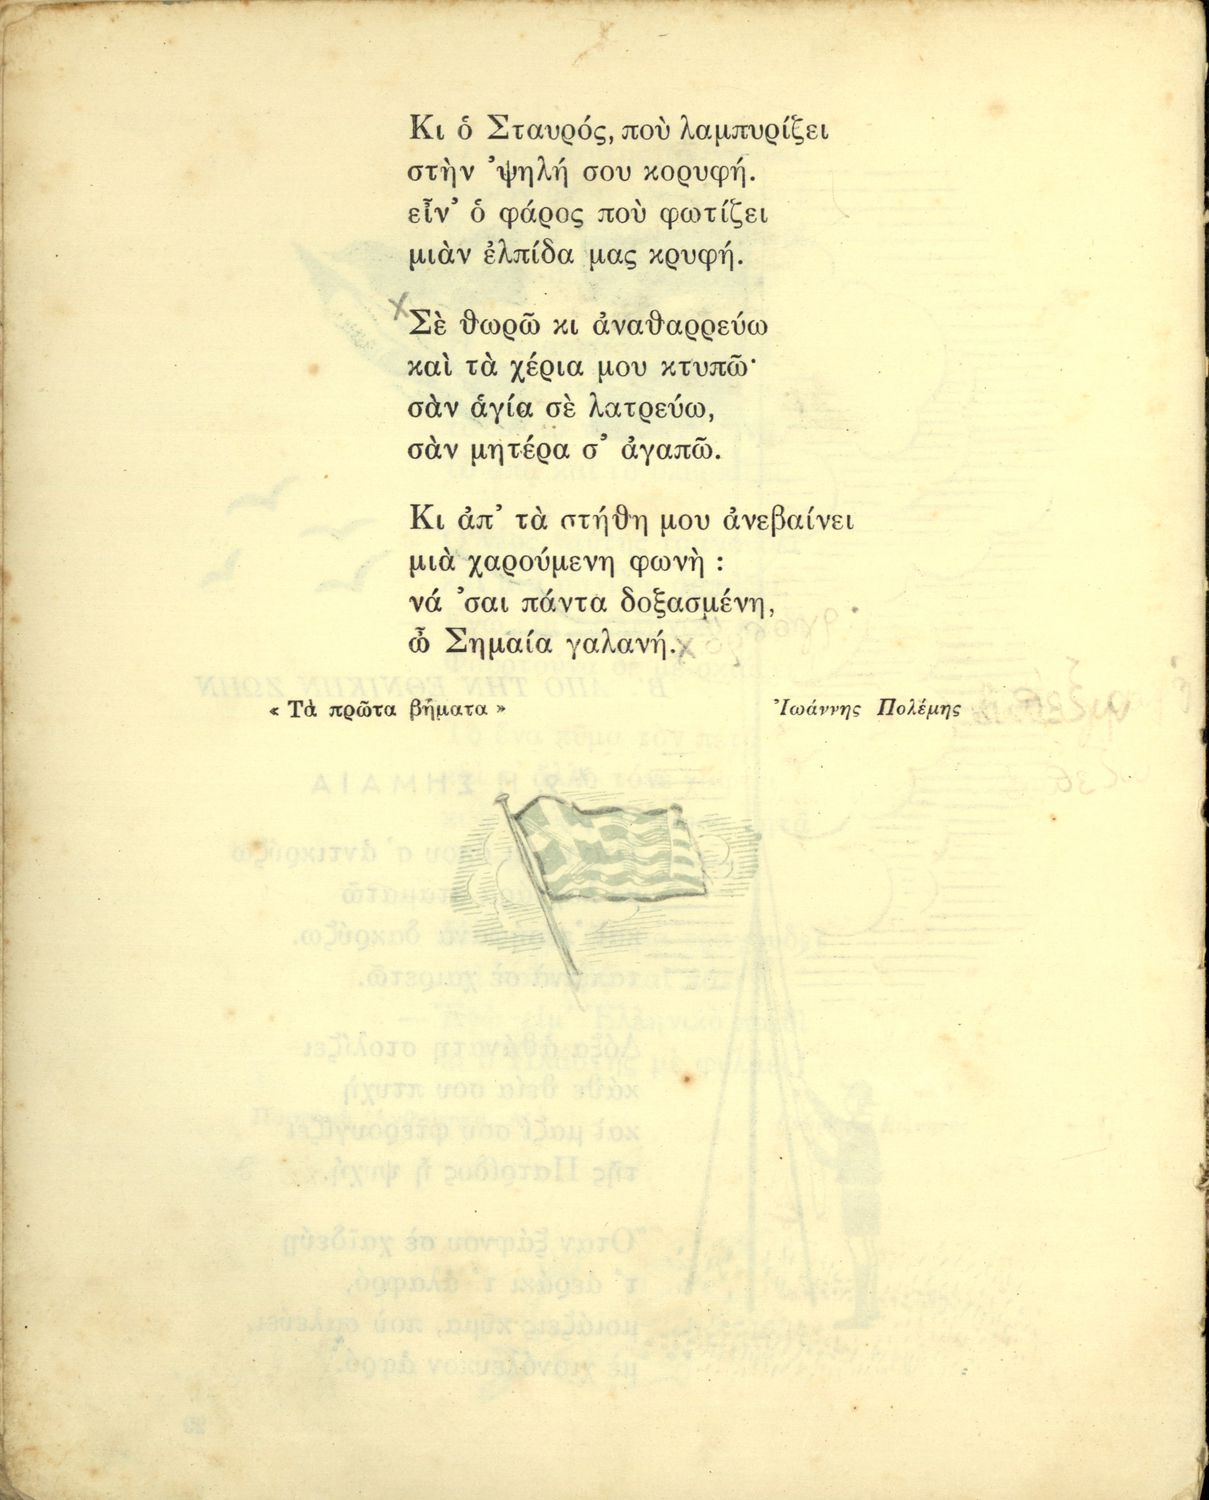 Κι ὁ Σταυρός, ποὺ λαμπυρίζει
στὴν ’ψηλή σου κορυφή.
εἶν’ ὁ φάρος ποὺ φωτίζει
μιὰν ἐλπίδα μας κρυφή.
Σὲ θωρῶ κι ἀναθαρρεύω
καὶ τὰ χέρια μου κτυπῶ·
σὰν ἁγία σὲ λατρεύω,
σὰν μητέρα σ’ ἀγαπῶ.
Κι ἀπ’ τὰ στήθη μου ἀνεβαίνει
μιὰ χαρούμενη φωνὴ :
νά ’σαι πάντα δοξασμένη,
ὦ Σημαία γαλανή.
« Τὰ πρῶτα βήματα » Ἰωάννης Πολέμης